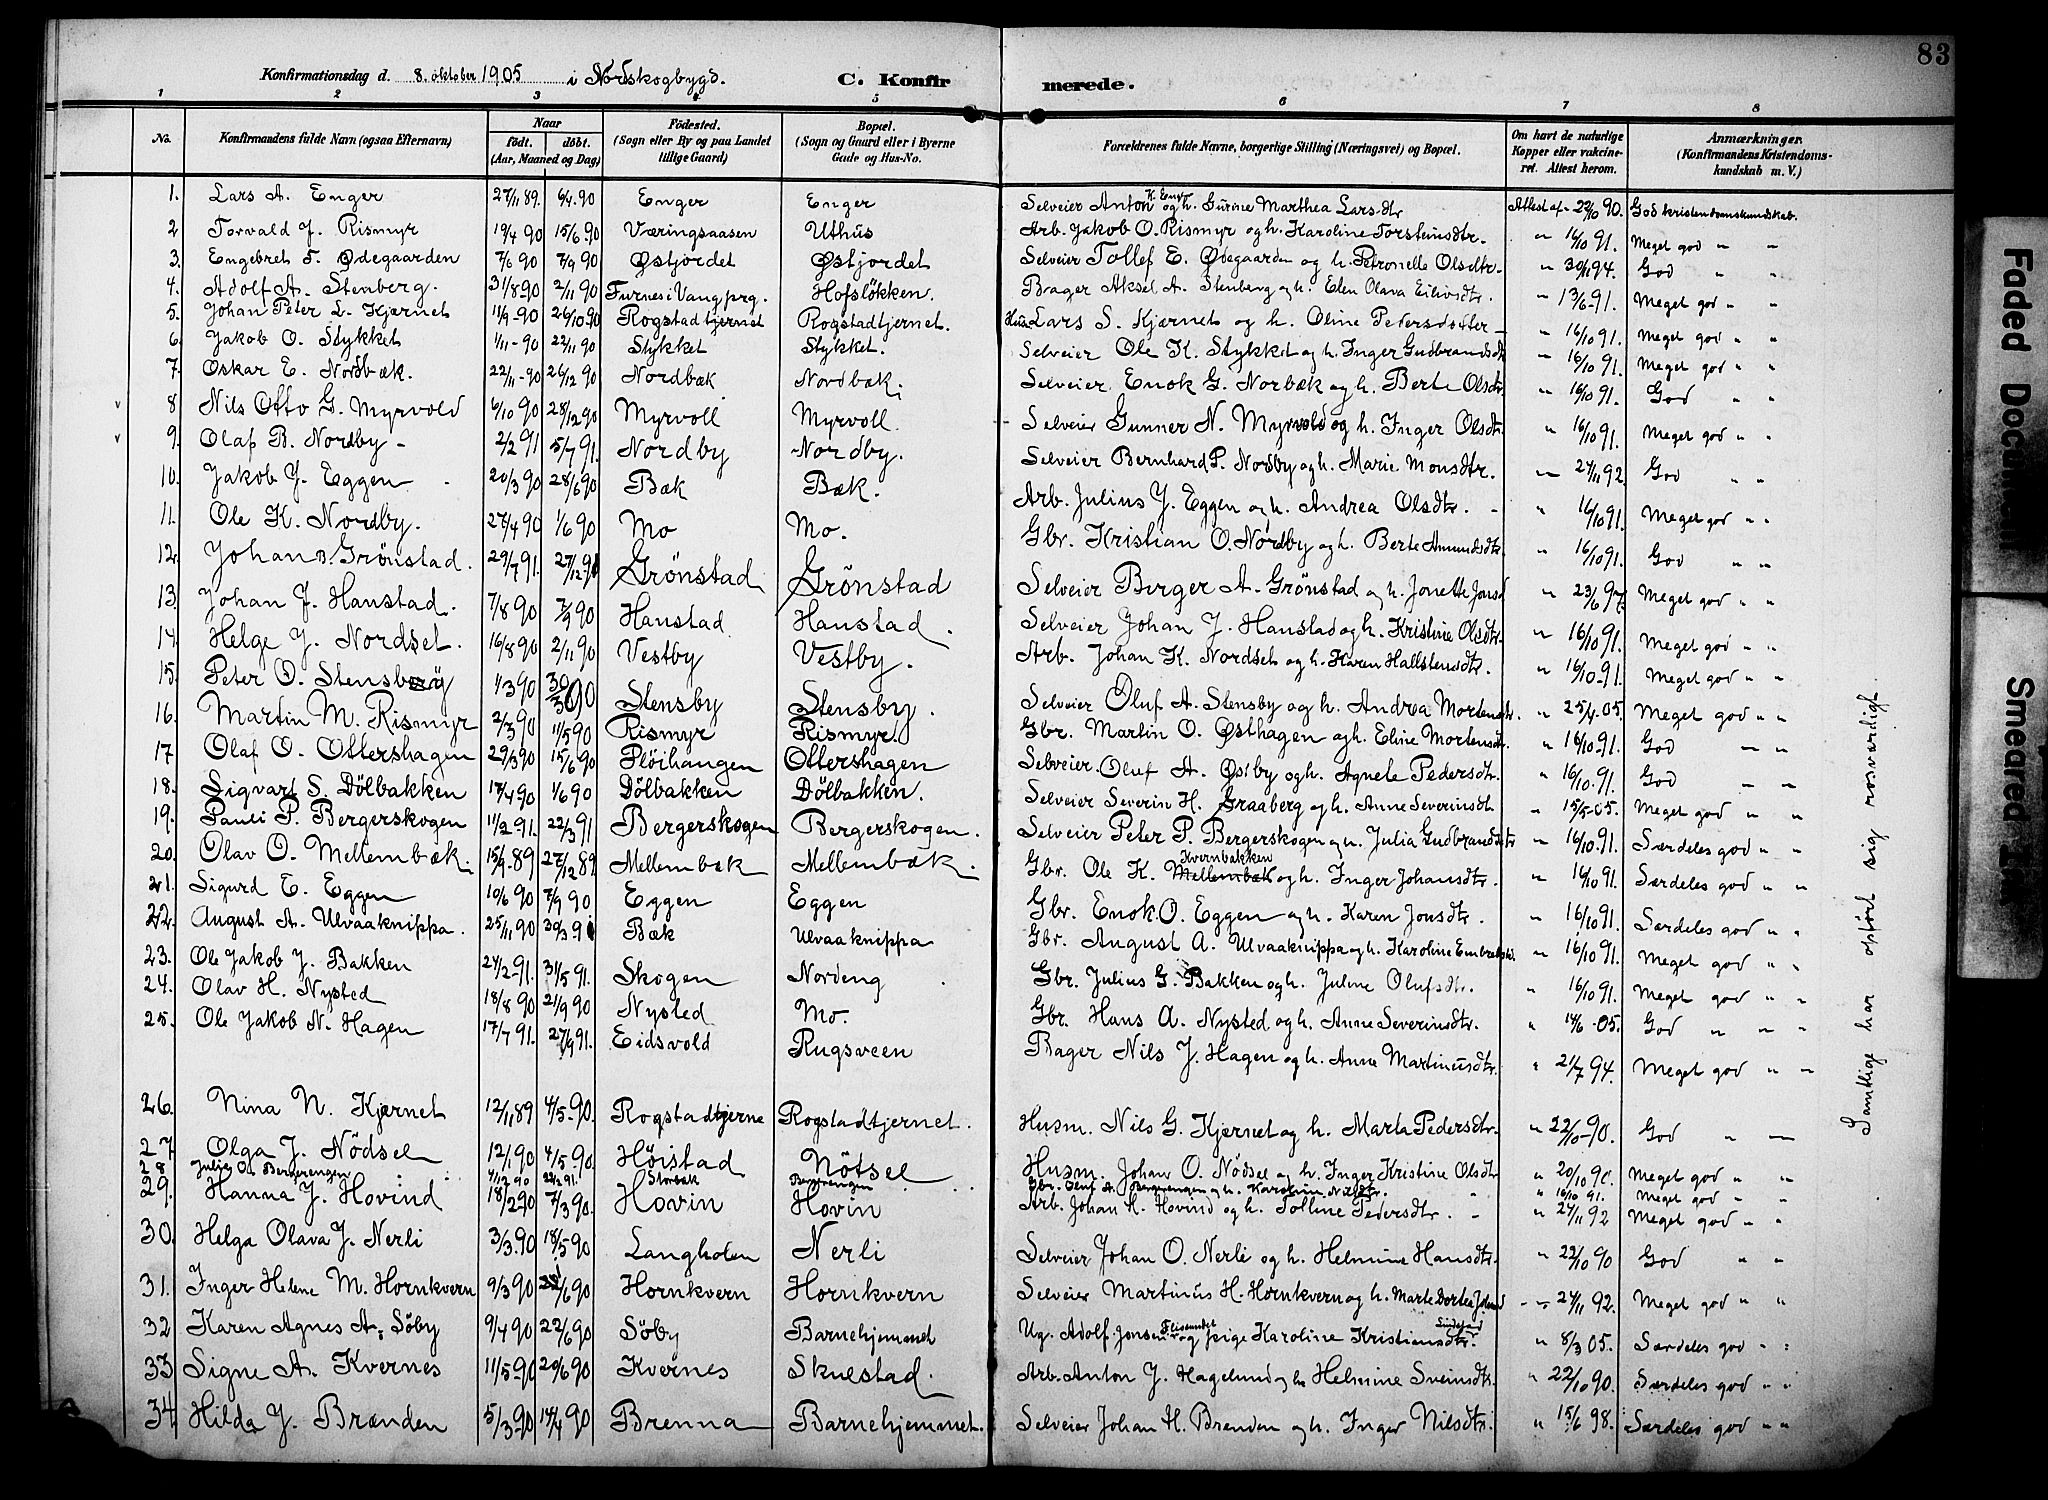 83
Konfirmationsdag d. 8. oktober 1905 i Nordskogbygd. C. Konfirmerede.
1 2 3 4 5 6 7 8
No. Konfirmandens fulde Navn (ogsaa Efternavn) Naar födt. döbt. (Aar, Maaned og Dag) Födested. (Sogn eller By og paa Landet tillige Gaard) Bopæl. (Sogn og Gaard eller i Byerne Gade og Hus-No. Forældrenes fulde Navne, borgerlige Stilling (Næringsvei) og Bopæl. Om havt de naturlige Kopper eller vakcineret. Attest herom. Anmærkninger. (Konfirmandens Kristendomskundskab m. V.)
1. Lars A. Enger 27/11 89. 6/4. 90 Enger Enger Selveier Anton K. Enger og h. Gurine Marthea Larsdtr Attest af - 22/10 90. God kristendomskundskab.
2 Torvald J. Rismyr 19/4 90 15/6-90 Væringsaasen Uthus Arb. Jakob O. Rismyr og h. Karoline Torsteinsdtr. " 16/10 91. Meget god " "
3. Engebret T. Ødegaarden 7/6 90 7/9 90 Østjordet Østjordet Selveier Tollef E. Ødegaarden og h. Petronelle Olsdtr- " 30/11 94. God " "
4. Adolf A. Stenberg. 31/8-90 2/11 90 Furnes i Vang prg. Hofsløkken. Brager Aksel A. Stenberg og h. Elen Olava Eilivsdtr. " 13/6-91. Meget god " "
5. Johan Peter L. Kjernet 11/9-90 26/10.90 Rogstadtjernet Rogstadtjernet. Husm Lars S. Kjærnet og h. Oline Pedersdatter - " 16/10 91. Meget god " "
6. Jakob O. Stykket 1/11-90 22/11 90 Stykket Stykket. Selveier Ole K. Stykket og h. Inger Gudbrandsdt " 16/10 91. Meget god " "
7. Oskar E. Nordbæk. 22/11-90 26/12 90 Nordbæk Nordbæk. Selveier Enok G. Norbæk og h. Berte Olsdtr " 16/10 91. God " "
8 Nils Otto G. Myrvold 6/10 90 28/12 90 Myrvoll Myrvoll. - Selveier Gunner N. Myrvold og h. Inger Olsdtr. " 16/10 91. Meget god " "
9. Olaf B. Nordby - 2/2 91 5/7 91. Nordby Nordby. Selveier Bernhard P. Nordby og h. Marie Monsdtr. " 27/11 92. God " "
10. Jakob J. Eggen 20/3 90 28/6 90 Bæk Bæk. Arb. Julius J. Eggen og h. Andrea Olsdtr. - " 16/10 91. Meget god " "
11. Ole K. Nordby. 27/4 90 1/6 90 Mo Mo. Gbr. Kristian O. Nordby og h. Berte Amundsdtr " 16/10 91. God " "
12. Johan B. Grönstad. 29/7 91. 27/12 91 Grönstad Grönstad Selveier Berger A. Grönstad og h. Jonette Jonsd " 23/6 97. Meget god " "
13. Johan J. Hanstad. 7/8 90 7/9 90 Hanstad Hanstad. Selveier Johan J. Hanstad og h. Kristine Olsdtr. " 16/10 91. Meget god " "
14. Helge J. Nordset. 16/8 90 2/11 90 Vestby Vestby. Arb. Johan K. Nordset og h. Karen Hallstensdtr. " 16/10-91. Meget god " "
15. Peter O. Stensby 1/3 90 30/3 90 Stensby Stensby. Selveier Oluf A. Stensby og h. Andrea Mortensdtr. " 25/4-05. Meget god " "
16. Martin M. Rismyr 2/3 90 11/5 90 Rismyr Rismyr. Gbr. Martin O. Østhagen og h. Eline Mortensdtr. " 16/10-91. God " "
17 Olaf O. Ottershagen 29/3 90 15/6 90 Plöihaugen Ottershagen Selveier. Oluf A. Østby og h. Agnete Pedersdtr. " 16/10. 91. God " "
18. Sigvart S. Dölbakken 17/4 90 1/6 90 Dölbakken Dölbakken. Selveier Severin H. Graaberg og h. Anne Severinsdtr. " 15/5-05. Meget god " "
19. Pauli P. Bergerskogen 11/2 91. 22/3 91 Bergerskogen Bergerskogen. Selveier Peter P. Bergerskogen og h. Julia Gudbrandsdtr " 16/10.91. Særdeles god " "
20. Olav O. Mellembæk. 15/9-89 27/12 89 Mellembæk Mellembæk. Gbr. Ole K. Kvernbakken Mellembæk og h. Inger Johansdtr. " 16/10 91. Særdeles god " "
21. Sigurd E. Eggen 10/6 90 7/9 90 Eggen Eggen Gbr. Enok O. Eggen og h. Karen Jonsdtr. " 16/10 91. Særdeles god " "
22. August A. Ulvaaknippa. 25/11 90 30/3-91 Bæk Ulvaaknippa Gbr. August A. Ulvaaknippa og h. Karoline Embretsd. " 16/10 91. Meget god " "
23. Ole Jakob J. Bakken 24/2-91. 31/5 91. Skogen Nordeng Gbr. Julius G. Bakken og h. Juline Olufsdtr. " 16/10 91. Meget god " "
24. Olav H. Nysted 18/8 90 21/9 90 Nysted Mo. Gbr. Hans A. Nysted og h. Anne Severinsdtr. " 14/6-05. God " "
25. Ole Jakob N. Hagen 17/7 91. 27/9 91. Eidsvold Rugsveen Bager Nils J. Hagen og h. Anne Martinusdtr. " 21/7 94. Meget god " "
26. Nina N. Kjernet 12/11 89 4/5-90. Rogstadtjerne Rogstadtjernet. Husm. Nils G. Kjernet og h. Marta Pedersdtr. " 22/10-90. God " "
27 Olga J. Nödsel 12/1 90 4/5-90. Höistad Nötsel Husm. Johan O. Nödsel og h. Inger Kristine Olsdtr " 20/10 90. Meget god " "
28 Julie O. Bergerengen 4/12 90 22/2 91. Storbæk Bergerengen Gbr. Oluf A. Bergerengen og h. Karoline Nilsdtr. " 16/10 91. Meget god " "
29. Hanna J. Hovind 18/2-90 7/3 90. Hovin Hovin Arb. Johan H. Hovind og h. Tolline Pedersdtr. - " 27/11 92 Meget god " "
30. Helga Olava J. Nerli 3/3.90 18/5 90 Langholen Nerli Selveier Johan O. Nerli og h. Helmine Hansdtr. " 22/10 90 God " "
31. Inger Helene M. Hornkvern 9/3 90 /6 90 Hornkvern Hornkvern Selveier Martinus H. Hornkvern og h. Marte Dortea " 27/11 92. Meget god " "
32 Karen Agnes A. Söby 9/4 90 22/6 90 Söby Barnehjemmet Ug. Adolf Jonsen og pige Karoline Kristiansdtr. " 8/3 05. Særdeles god " "
33 Signe A. Kvernes 11/5-90 20/6 90 Kvernes Skulstad. Arb. Anton J. Hagelund og h. Helmine Sveinsdtr. " 22/10 90. Særdeles god " "
34 Hilda J. Brænden 5/3-90 14/4 90 Brenna Barnehjemmet. Selveier Johan H. Brenden og h. Inger Nilsdtr. " 15/6 98. Særdeles god " "
Samtlige har opført sig rosværdigt.
Faded Document
Smeared Ink